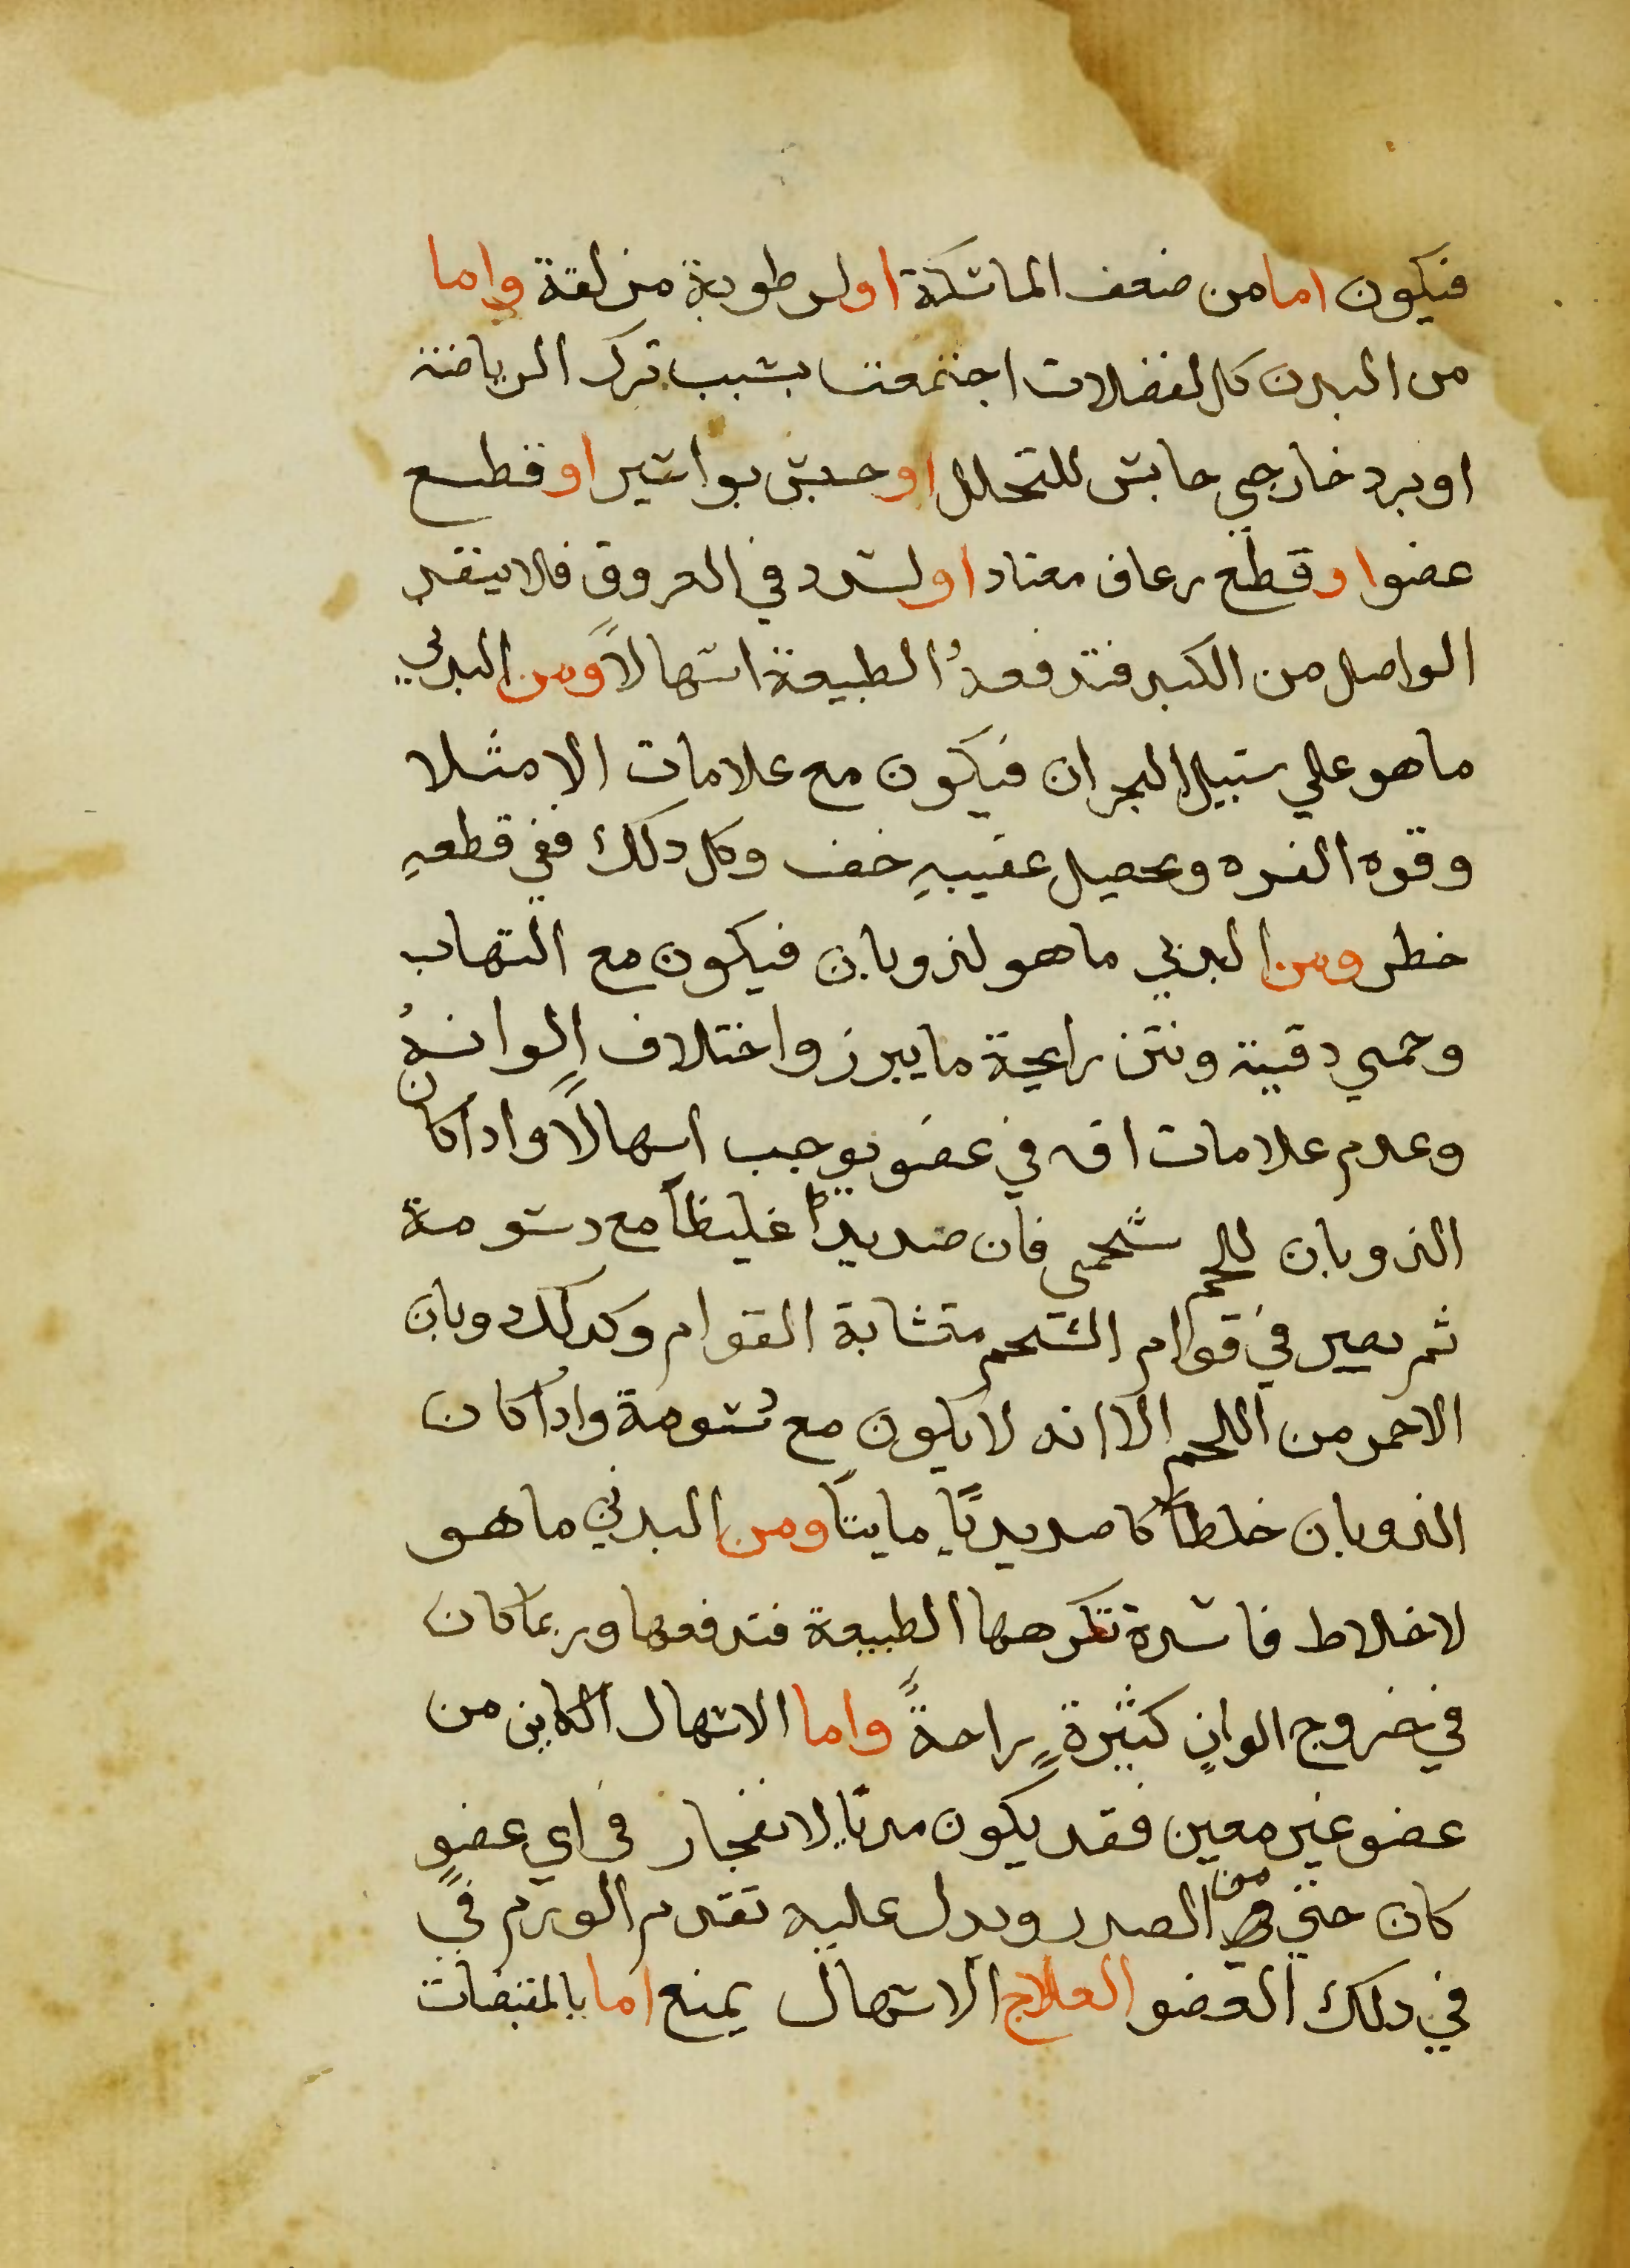 فيكون اما من ضعف الماسكة او لرطوبة مزلقة واما
من البدن كله لفضلات اجتمعت بسبب ترك الرياضة
او برد خارجي حابس للتحلل او حبس بواسير او قطع
عضو او قطع رعاف معتاد او لسدد في العروق فلا ينفد
الواصل من الكبد فتدفعهُ الطبيعة اسهالاً ومن البدني
ما هو علي سبيل البحران فيكون مع علامات الامتلا
وقوه القوه ويحصل عقيبهِ خف وكل دلك ففي قطعهِ
خطر ومن البدني ما هو لذوبان فيكون مع التهاب
وحمي دقية ونتن رايحة ما يبرز واختلاف الوانهُ
وعدم علامات افه في عضو يوجب اسهالاً وادا كان
الذوبان للحم شحمي فان صديداً غليظاً مع دسومة
ثم يصير في قوام الشحم متشابة القوام وكدلك وبان
الاحمر من اللحم الا انه لا يكون مع دسومة وادا كان
الذوبان خلطاً كا صديديًا ماييًا ومن البدني ما هو
لاخلاط فاسدة تكرهها الطبيعة فتدفعها وربما كان
في خروج الوانٍ كثيرةٍ راحةً واما الاسهال الكاين من
عضو غير معين فقد يكون مديًا لانفجار في اي عضوٍ
كان حتي من الصدر ويدل عليه تقدم الورم في
في دلك العضو العلاج الاسهال يمنع اما بالمقبضات